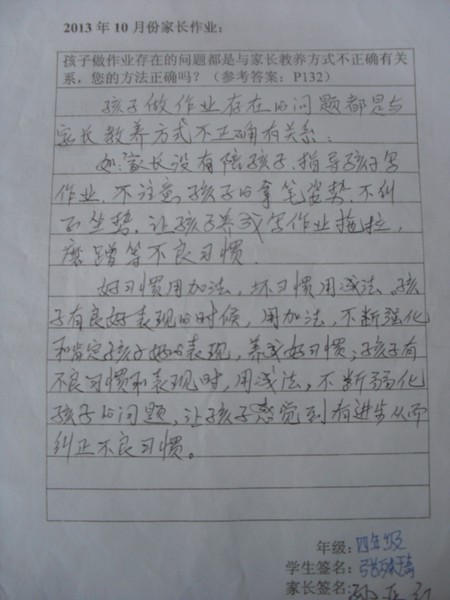 2013 年 10 月份家长作业：
孩子做作业存在的问题都是与家长教养方式不正确有关
系，您的方法正确吗？（参考答案：P132）
孩子做作业存在的问题都是与
家长教养方式不正确有关系：
如：家长没有陪孩子、指导孩子写
作业，不注意孩子的拿笔姿势，不纠
正坐势，让孩子养成写作业拖拉，
磨蹭等不良习惯.
好习惯用加法，坏习惯用减法。孩
子有良好表现的时候，用加法，不断强化
和肯定孩子好的表现，养成好习惯；孩子有
不良习惯和表现时，用减法，不断弱化
孩子的问题，让孩子感觉到有进步从而
纠正不良习惯。
年级：四年级
学生签名：
家长签名：